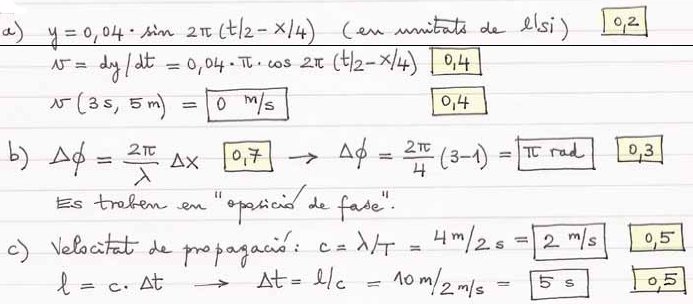 a) y = 0,04 · sin 2π (t/2 - x/4) (en unitats de l'SI) 0,2
v = dy/dt = 0,04 · π · cos 2π (t/2 - x/4) 0,4
v (3 s, 5 m) = 0 m/s 0,4
b) Δφ = 2π/λ Δx 0,7 → Δφ = 2π/4 (3-1) = π rad 0,3
Es troben en "oposició de fase".
c) Velocitat de propagació: c = λ/T = 4 m/2 s = 2 m/s 0,5
l = c · Δt → Δt = l/c = 10 m/2 m/s = 5 s 0,5